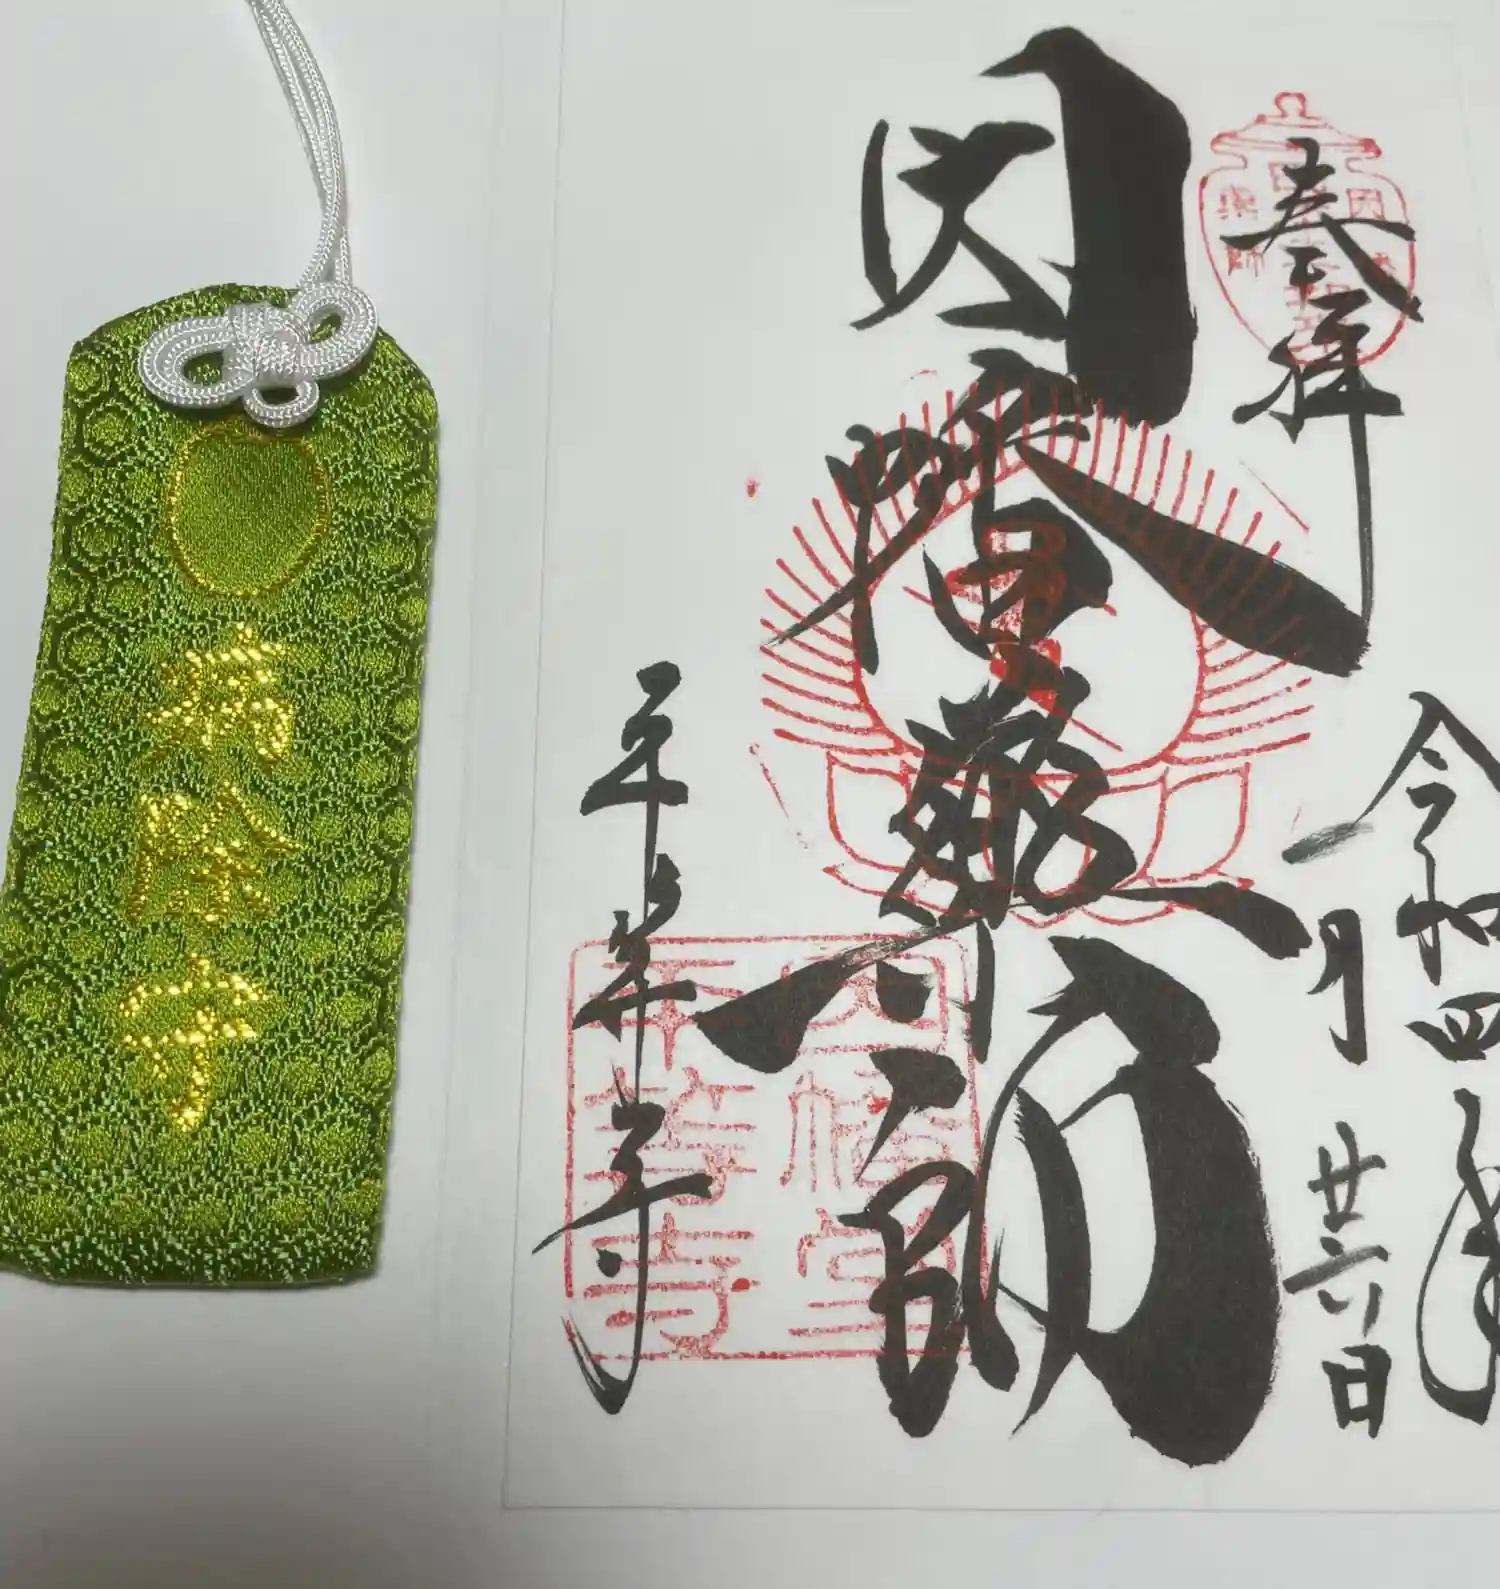 奉拝
令和四年
一月廿六日
因幡薬師
平等寺
病除守
因幡堂
平等寺